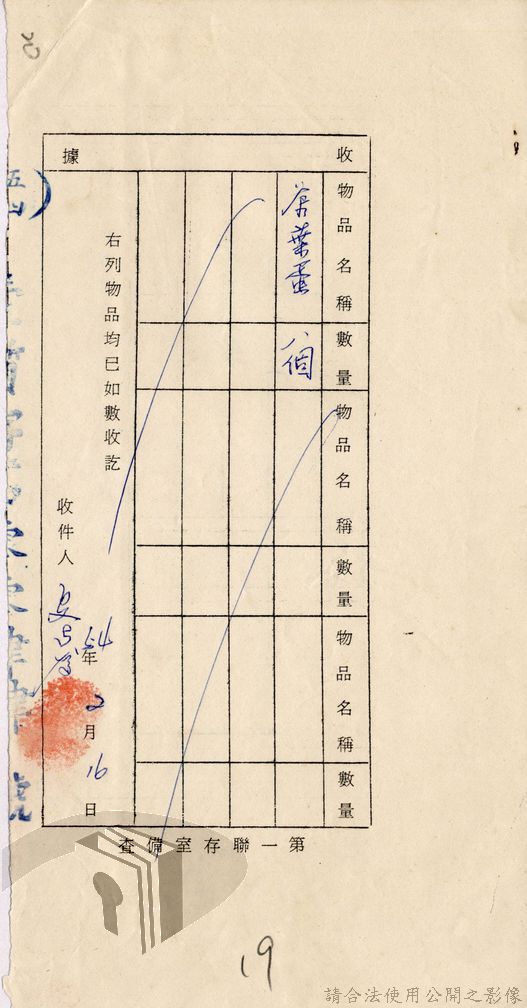 收據
物品名稱 數量 物品名稱 數量 物品名稱 數量
茶葉蛋 八個
右列物品均已如數收訖
收件人
54年2月16日
第一聯存室備查
19
請合法使用公開之影像